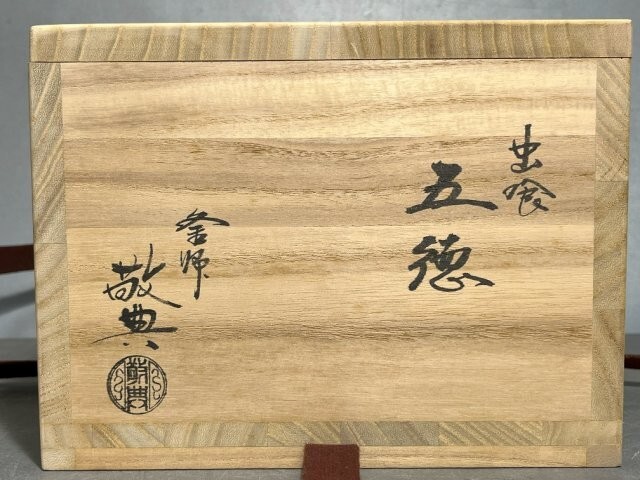 出飡
五徳
釜師
敬典
敬典